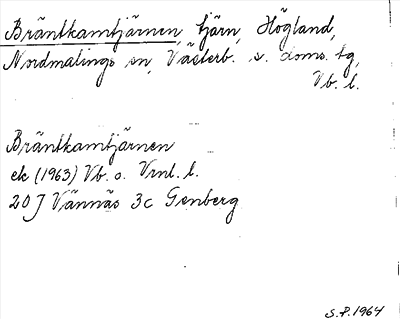 Bräntkamtjärnen, tjärn, Högland,
Nordmalings sn, Västerb. s. doms. tg,
Vb. l.
Bräntkamtjärnen
ek (1963) Vb. o. Vrnl. l.
20 J Vännäs 3c Genberg
S.P. 1964